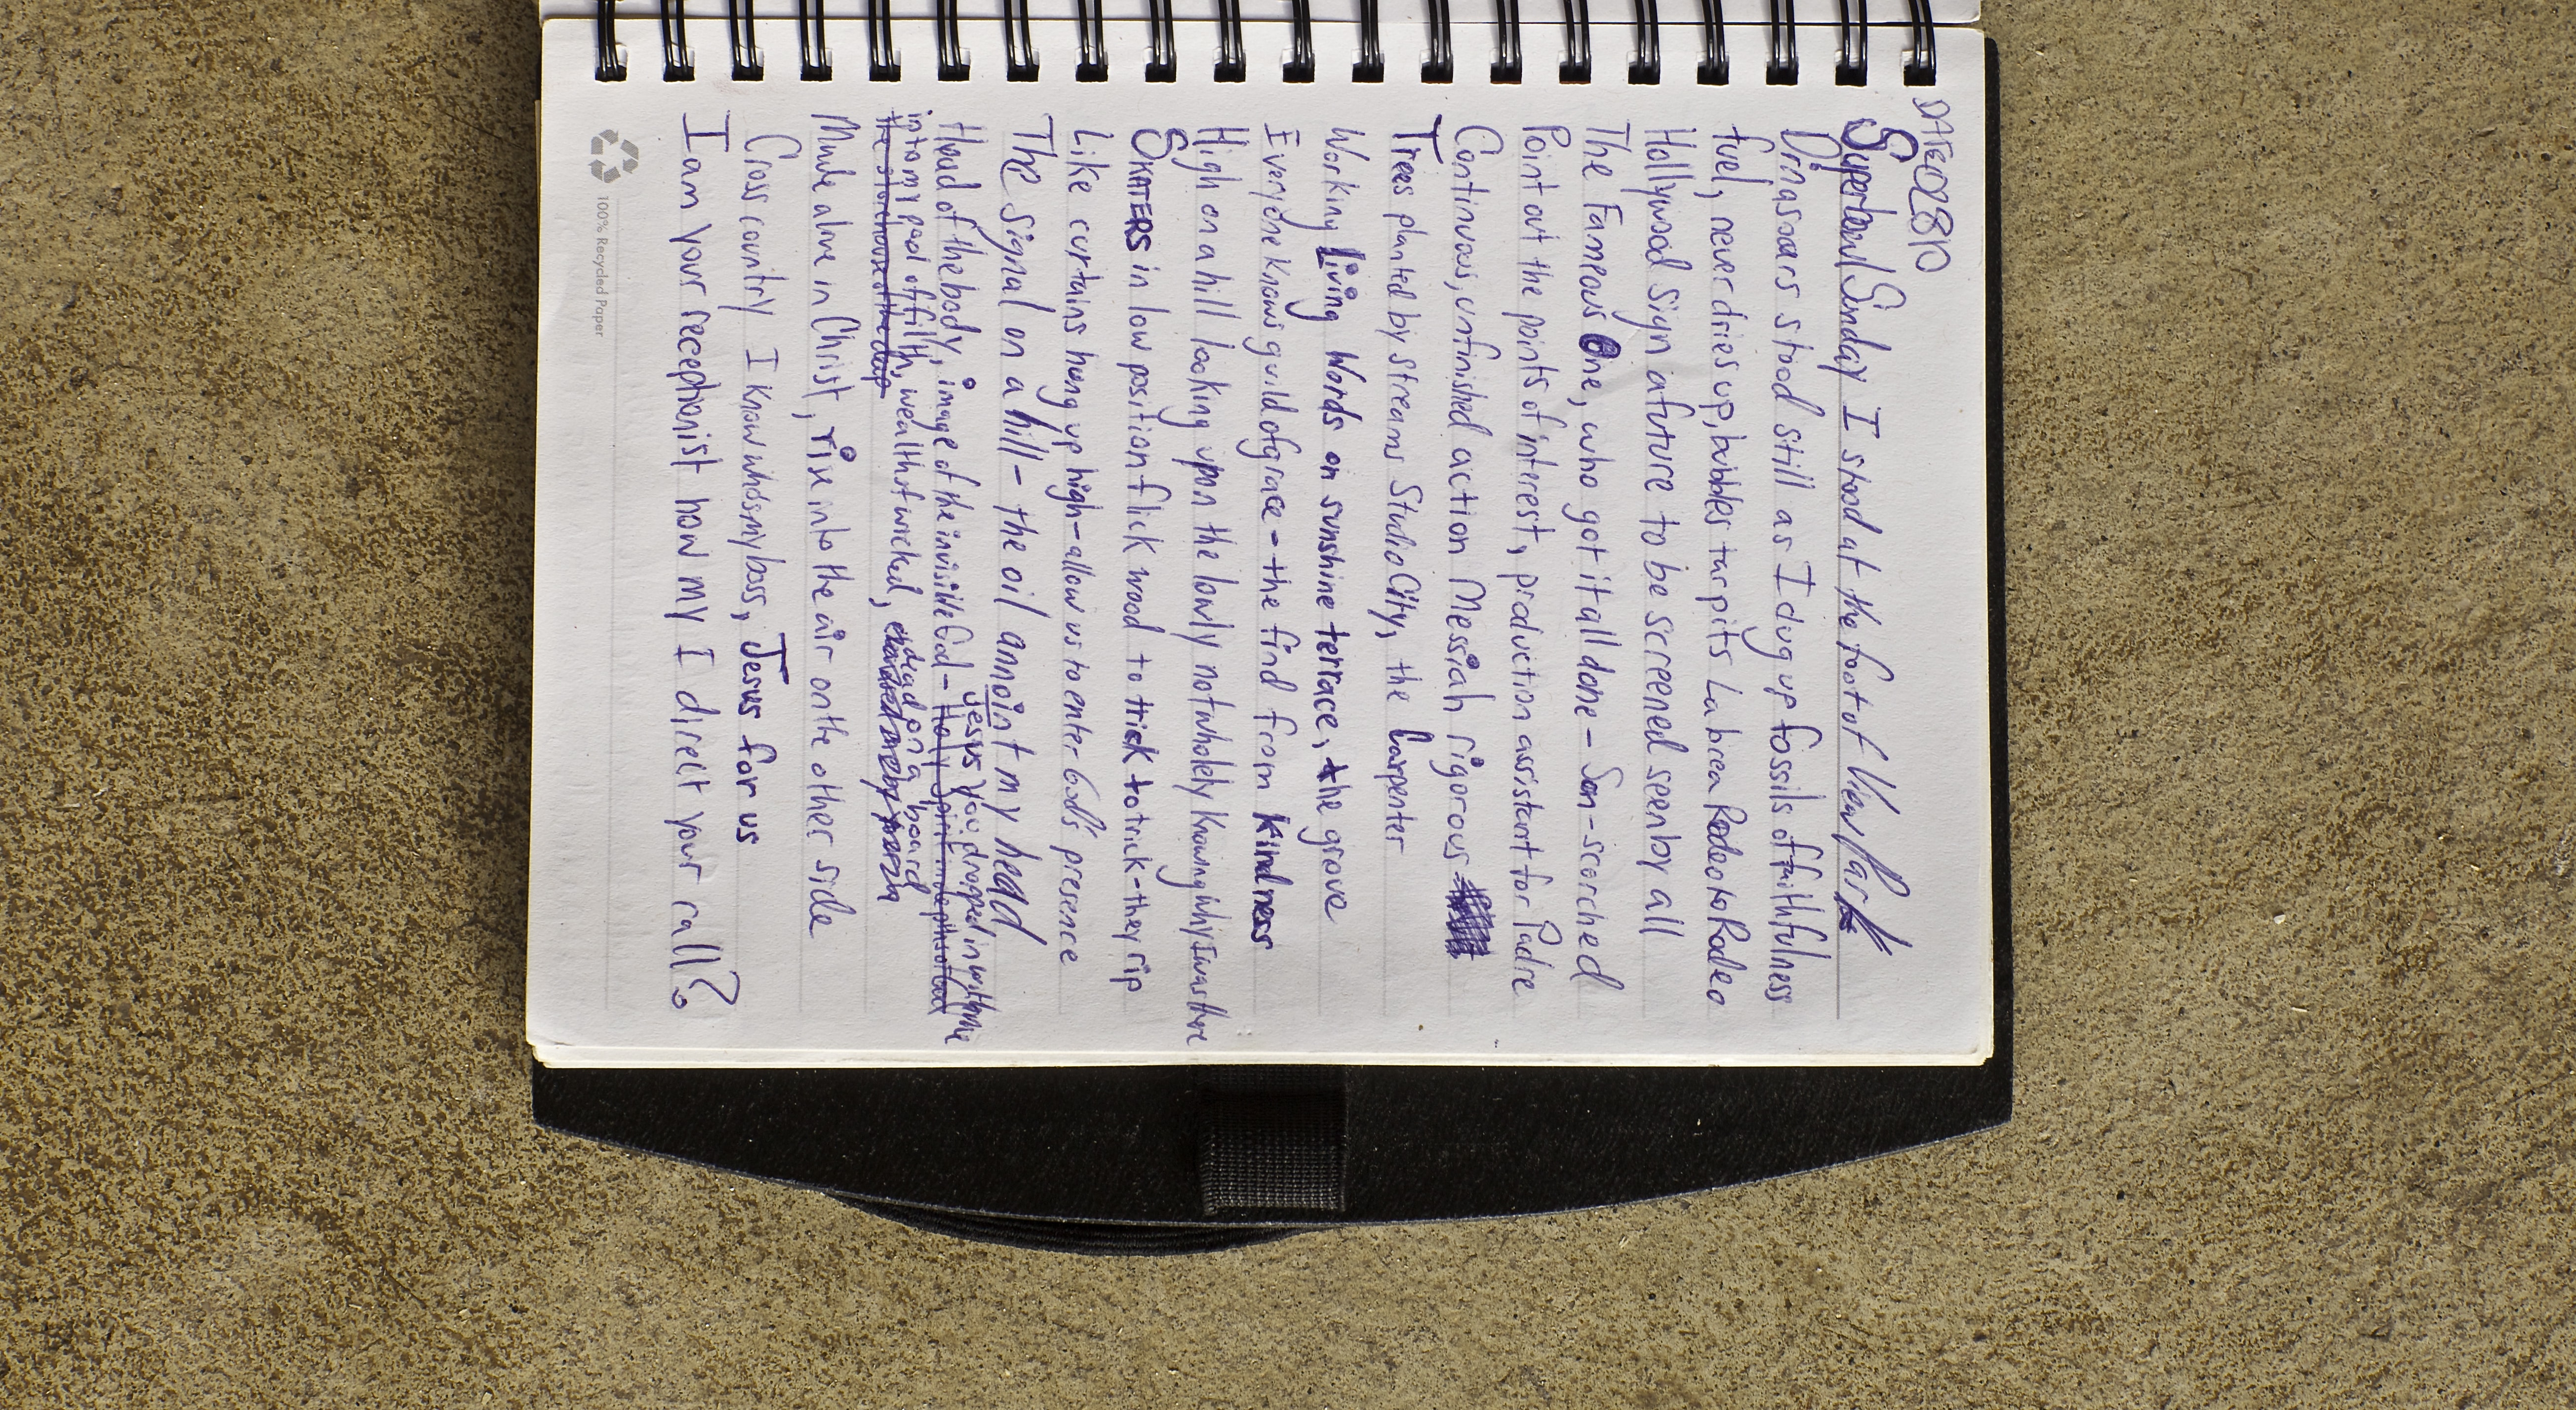 DATE 020810
Superbowl Sunday I stood at the foot of View Park
Dinasoars stood still as I dug up fossils of faithfulness
fuel, never dries up, bubbles tar pits La brea Rodeo to Rodeo
Hollywood sign a future to be screened seen by all
The Fameous One, who got it all done - Son-scorched
Point out the points of interest, production assistant for Padre
Continuous, unfinished action Messiah rigorous
Trees planted by streams Studio City, the Carpenter
Working Living Words on sunshine terrace, the grove
Everyone knows guild of grace - the find from kindness
High on a hill looking upon the lowly not wholely knowing why I was there
SKATERS in low position flick wood to trick to trick - they rip
Like curtains hung up high - allow us to enter God's presence
The signal on a hill - the oil annoint my head
Jesus you dropped in with me
Head of the body, image of the invisible God - Holy Spirit in depths of
into my pool of filth, wealth of wicked, dead on a board
the storehouse of the
Made alive in Christ, rise into the air onthe other side
Cross country I know who's my boss, Jesus for us
I am your receptionist how my I direct your call?
100% Recycled Paper